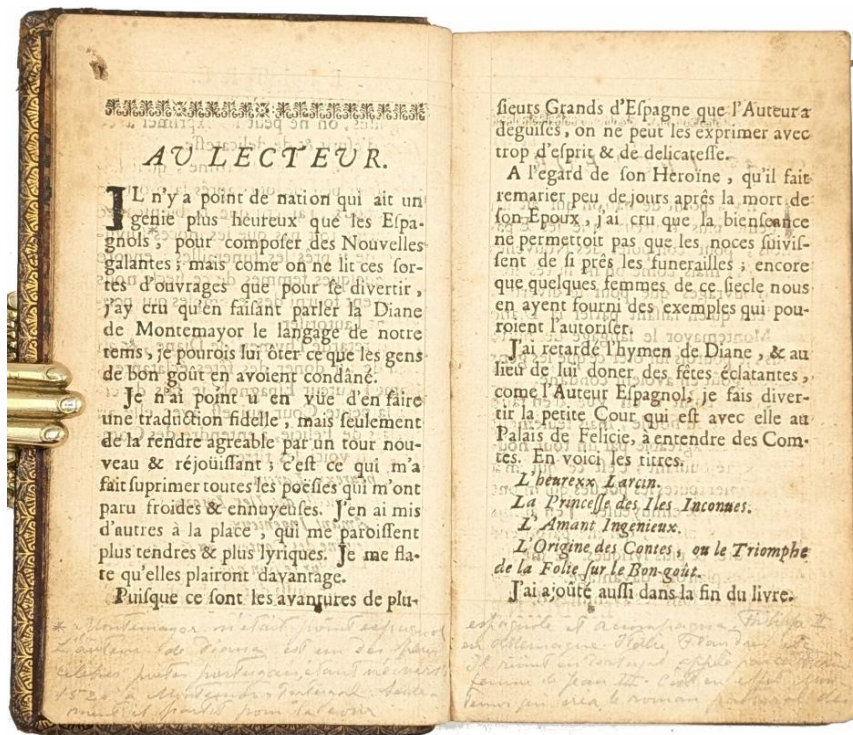 AU LECTEUR.
IL n'y a point de nation qui ait un
genie plus heureux que les Eſpa-
gnols, pour compoſer des Nouvelles
galantes ; mais come on ne lit ces ſor-
tes d'ouvrages que pour ſe divertir,
j'ay cru qu'en faiſant parler la Diane
de Montemayor le langage de notre
tems, je pourois lui ôter ce que les gens
de bon goût en avoient condâné.
Je n'ai point u en vûe d'en faire
une traduction fidelle, mais ſeulement
de la rendre agreable par un tour nou-
veau & réjoüiſſant ; c'eſt ce qui m'a
fait ſuprimer toutes les poëſies qui m'ont
paru froides & ennuyeuſes. J'en ai mis
d'autres à la place, qui me paroiſſent
plus tendres & plus lyriques. Je me fla-
te qu'elles plairont davantage.
Puiſque ce ſont les avantures de plu-
* Montemayor n'était point espagnol
L'auteur de Diana est un des plus
célèbres poètes portugais, étant né vers
1520 à Montemor, Portugal.
partit pour
ſieurs Grands d'Eſpagne que l'Auteur a
déguiſés, on ne peut les exprimer avec
trop d'eſprit & de delicateſſe.
A l'egard de ſon Heroïne, qu'il fait
remarier peu de jours aprês la mort de
ſon Epoux, j'ai cru que la bienſeance
ne permettoit pas que les noces ſuiviſ-
ſent de ſi prês les funerailles ; encore
que quelques femmes de ce ſiecle nous
en ayent fourni des exemples qui pou-
roient l'autoriſer.
J'ai retardé l'hymen de Diane, & au
lieu de lui doner des fêtes éclatantes,
come l'Auteur Eſpagnol, je fais diver-
tir la petite Cour qui eſt avec elle au
Palais de Felicie, à entendre des Com-
tes. En voici les titres.
L'heurexx Larcin.
La Princeſſe des Iles Inconues.
L'Amant Ingenieux.
L'Origine des Contes, ou le Triomphe
de la Folie ſur le Bon-goût.
J'ai ajoûté auſſi dans la fin du livre,
espagnole et accompagna Philippe II
en Allemagne, Italie, Flandres
Il revint en Portugal appelé par
femme de Jean III. C'est en effet
le roman pastoral